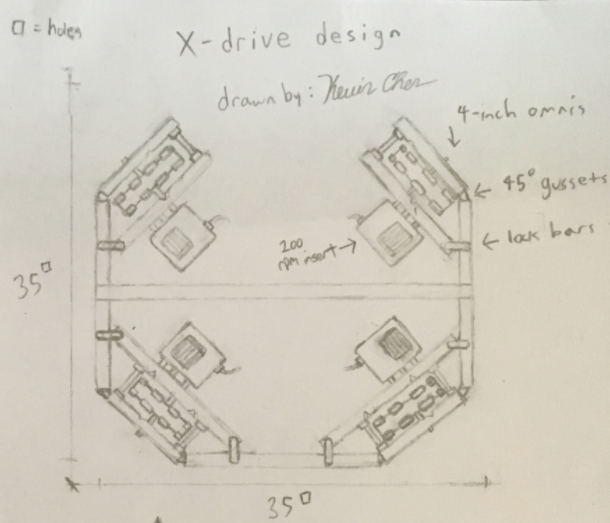 □ = holes
X-drive design
drawn by: Kevin Chen
4-inch omnis
45° gussets
lock bars
200
rpm insert
35□
35□